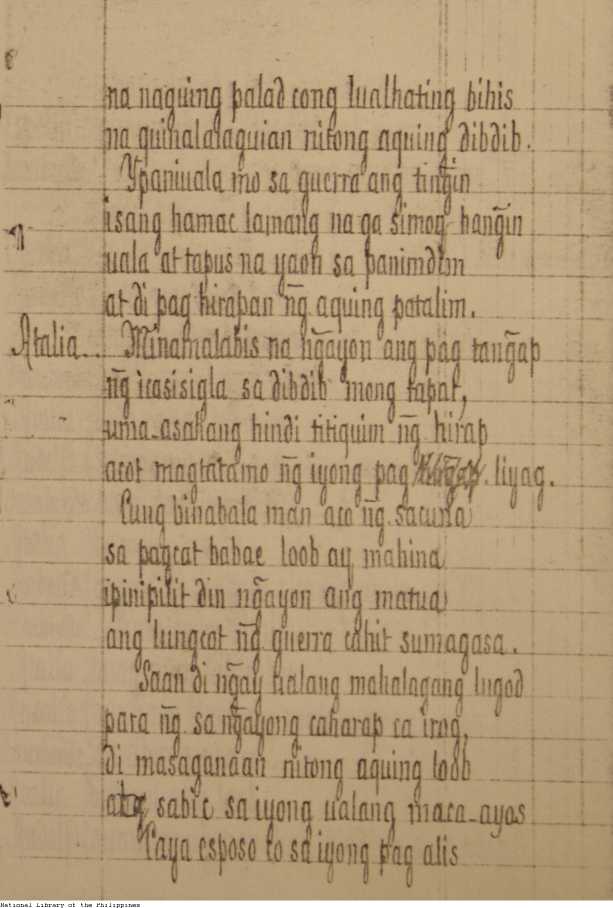 na naguing palad cong lualhating bihis
na quinalalaguian nitong aquing dibdib.
Ypaniuala mo sa guerra ang ting̃in
isang hamac lamang na ga simoy hang̃in
uala at tapus na yaon sa panimdim
at di pag hirapan ng̃ aquing patalim.
Atalia.. Minamalabis na ng̃ayon ang pag tang̃ap
ng̃ icasisigla sa dibdib mong tapat,
uma-asahang hindi titiquim ng̃ hirap
acot magtatamo ng̃ iyong pag liyag.
Cung binabala man aco ng̃ sacuna
sa pagcat babae loob ay mahina
ipinipilit din ng̃ayon ang matua
ang lungcot ng̃ guerra cahit sumagasa.
Saan di ng̃ay ualang mahalagang lugod
para ng̃ sa ng̃ayong caharap ca irog,
di masaganaan nitong aquing loob
at sabic sa iyong ualang maca-ayos
Caya esposo co sa iyong pag alis
National Library of the Philippines